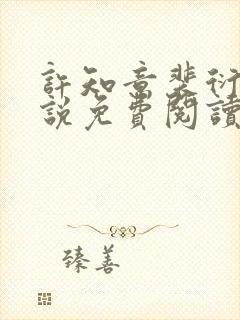 許知意裴衍
說免費閱讀
臻善